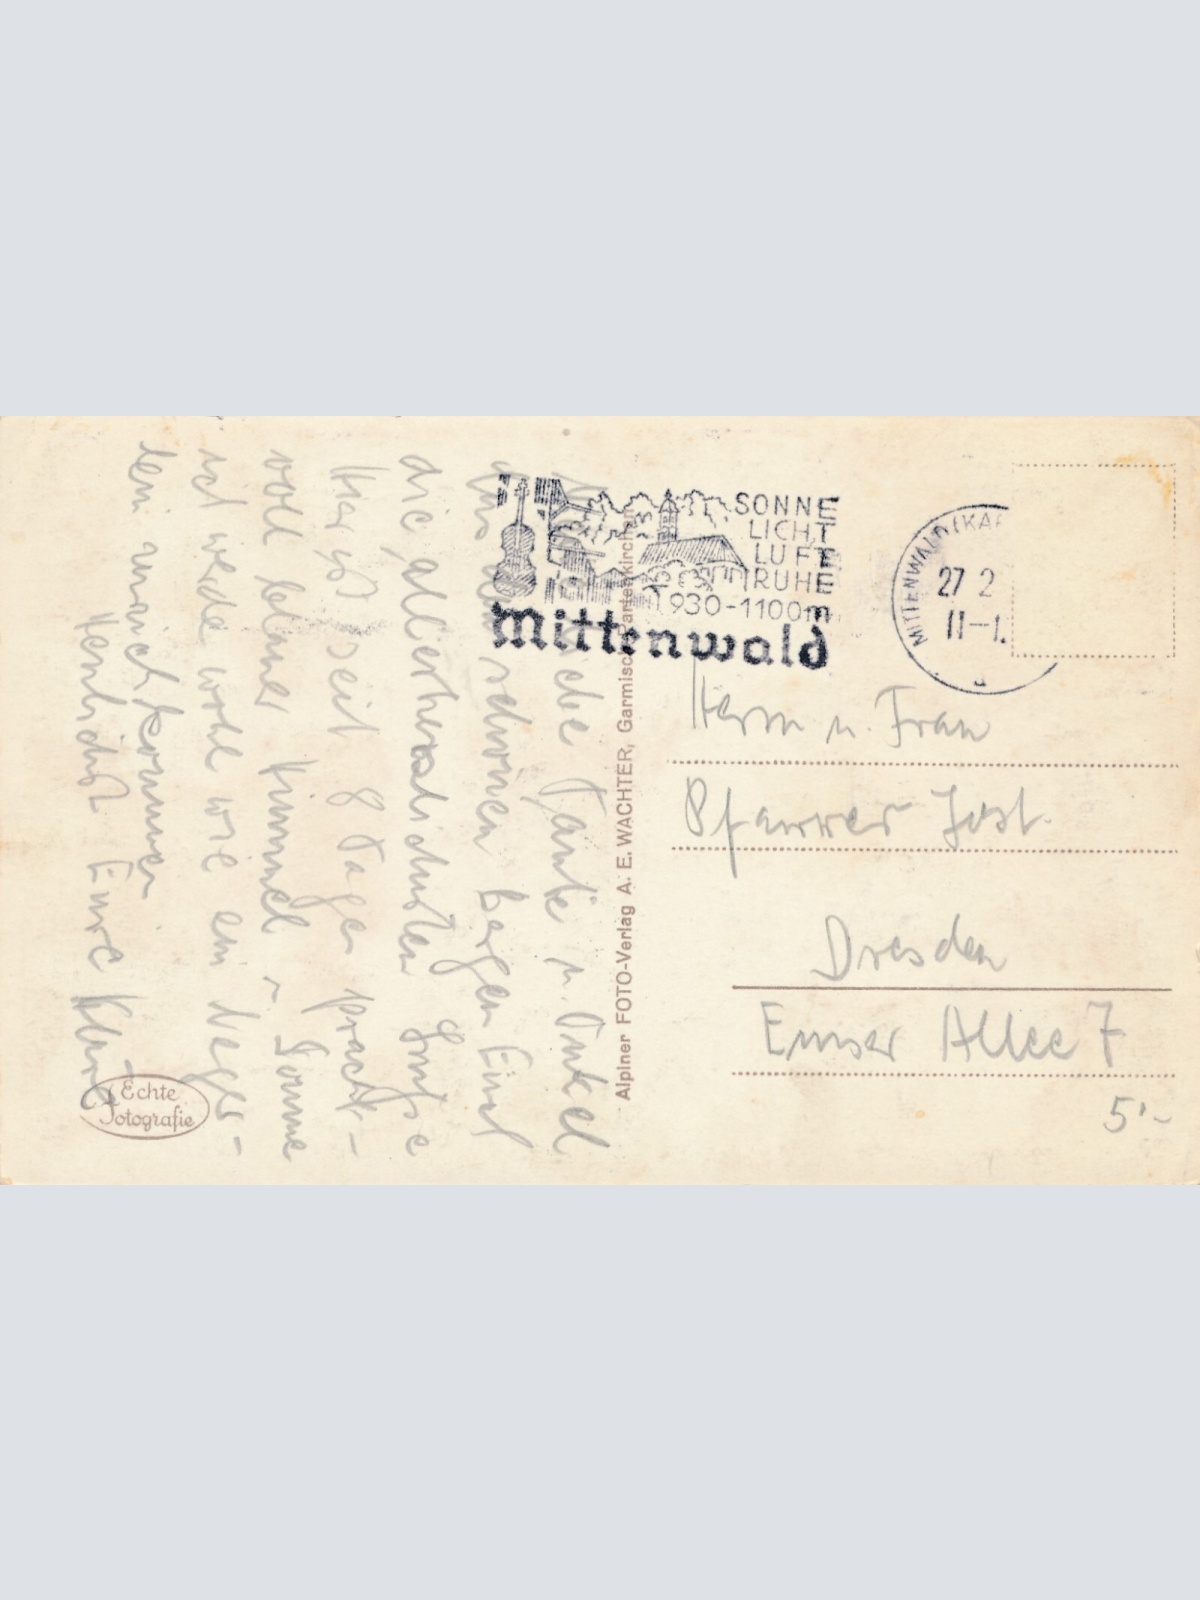 SONNE
LICHT
LUFT
RUHE
930-1100m
Mittenwald
MITTENWALD (KAR
27 2
11-1
Tante u. Onkel
schönen Bergen Euch
die allerherzlichsten Grüße
Hier ist seit 8 Tagen pracht-
voll blauer Himmel, Sonne
ich werde wohl wie ein Neger-
lein
Herzlichst Eure
Echte
Fotografie
Alpiner FOTO-Verlag A. E. WACHTER, Garmisch-Partenkirchen
Herrn u. Frau
Pfarrer Jost.
Dresden
Emser Allee 7
5'-